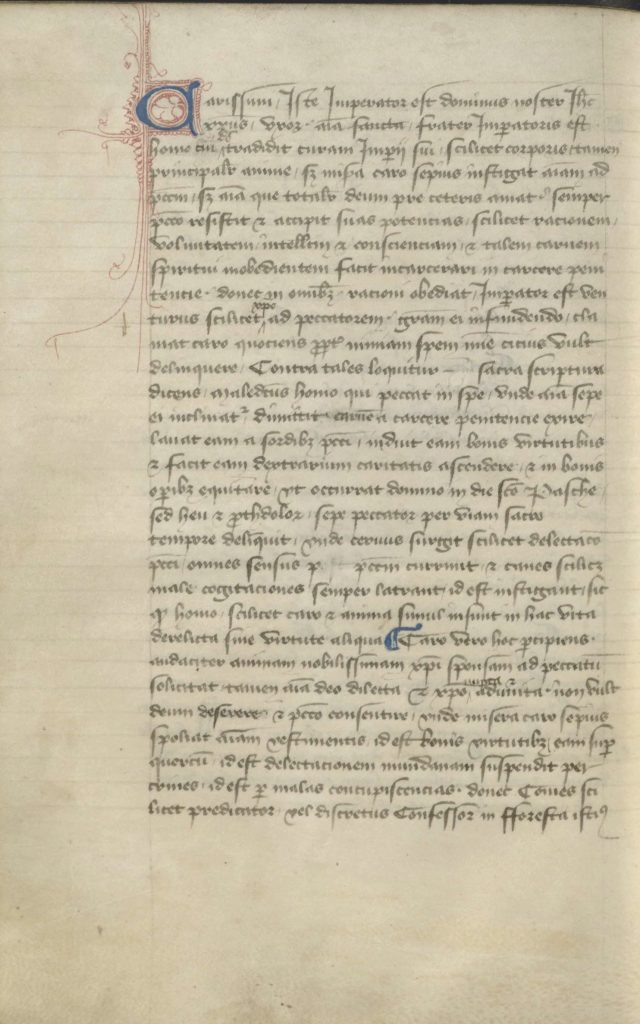 Carissimi / Iste Imperator est dominus noster Ihc
xpus / vxor aīa sancta / frater Imperatoris est
homo cui tradidit curam Imperii sui / scilicet corporis / tamen
principalr anime / sꝫ misa caro sepius instigat aīam ad
pccm / sꝫ aīa que totalr deum pre ceteris amat / semper
pccō resistit & accipit suas potencias / scilicet racionem
voluntatem / intellcm & conscienciam / & talem carnem
spiritui inobedientem facit incarcerari in carcere peni
tencie / donec in omībꝫ racioni obediat / Impator est ven
turus scilicet xpc ad peccatorem / gram ei infundendo / cla
mat caro quociens ppt nimiam spem mīe cicius vult
delinquere / Contra tales loquitur sacra scriptura
dicens / Maledcus homo qui peccat in spe / vnde aīa sepe
ei inclinatr dimittit carnē a carcere penitencie exire
lauat eam a sordibꝫ pcci / induit eam bonis virtutibus
& facit eam dextrarium caritatis ascendere / & in bonis
opibꝫ equitare / vt occurrat domino in die sco Pasche
sed heu & pthdolor / sepe peccator per viam sacro
tempore deliquit / vnde ceruus surgit scilicet delectaco
pcci / omnes sensus p pccm currunt / & canes scilicꝫ
male cogitaciones semper latrant / id est instigant / sic
qp homo / scilicet caro & anima simul insunt in hac vita
derelicta sine virtute aliqua Caro vero hoc pcipiens
audacter animam nobilissimam xpi sponsam ad peccatū
solicitat / tamen aīa deo dilecta & xpō iuncta & adiunta / non vult
deum deserere / & pccō consentire / vnde misera caro sepius
spoliat aīam vestimentis / id est bonis virtutibꝫ / eam sup
quercū / id est delectacionem mundanam suspendit per
crines / id est p malas concupiscencias / donec Comes sci
licet predicator / vel discretus Confessor in fforesta istiꝰ